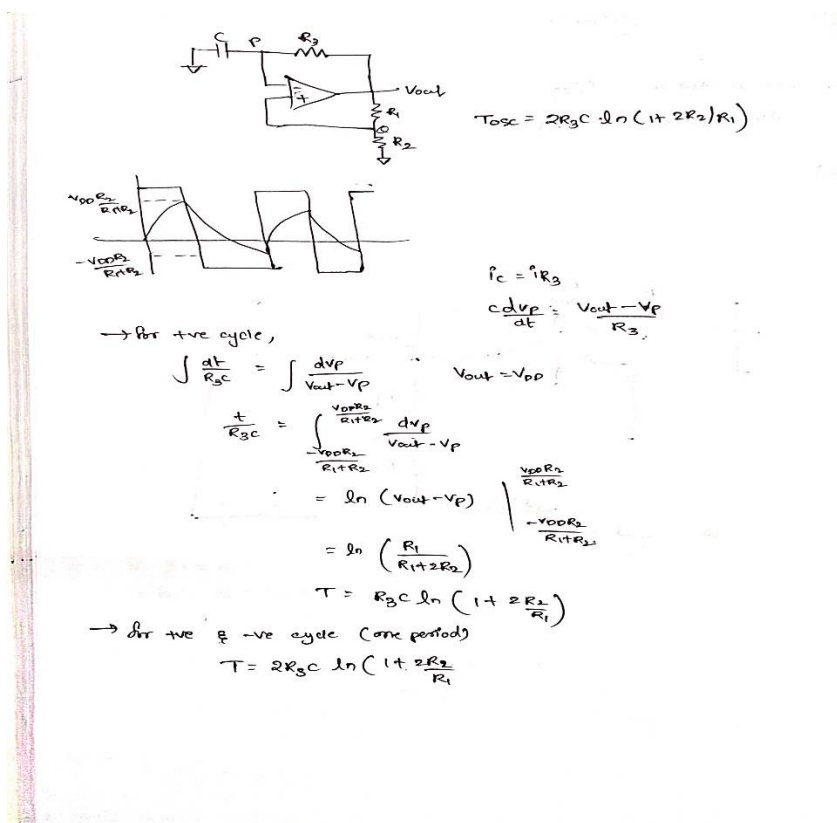 C P R3
- +
Vout
R1
Q
R2
Tosc = 2R3C ln (1+ 2R2/R1)
VDD R2/R1+R2
-VDDR2/R1+R2
ic = iR3
c dvp/dt = Vout-Vp/R3
→ for +ve cycle,
∫ dt/R3C = ∫ dvp/Vout-Vp Vout = VDD
t/R3C = ∫ -VDDR2/R1+R2 VDDR2/R1+R2 dvp/Vout-Vp
= ln (Vout-Vp) | VDDR2/R1+R2 -VDDR2/R1+R2
= ln (R1/R1+2R2)
T = R3C ln (1+ 2R2/R1)
→ for +ve & -ve cycle (one period)
T= 2R3C ln (1+ 2R2/R1